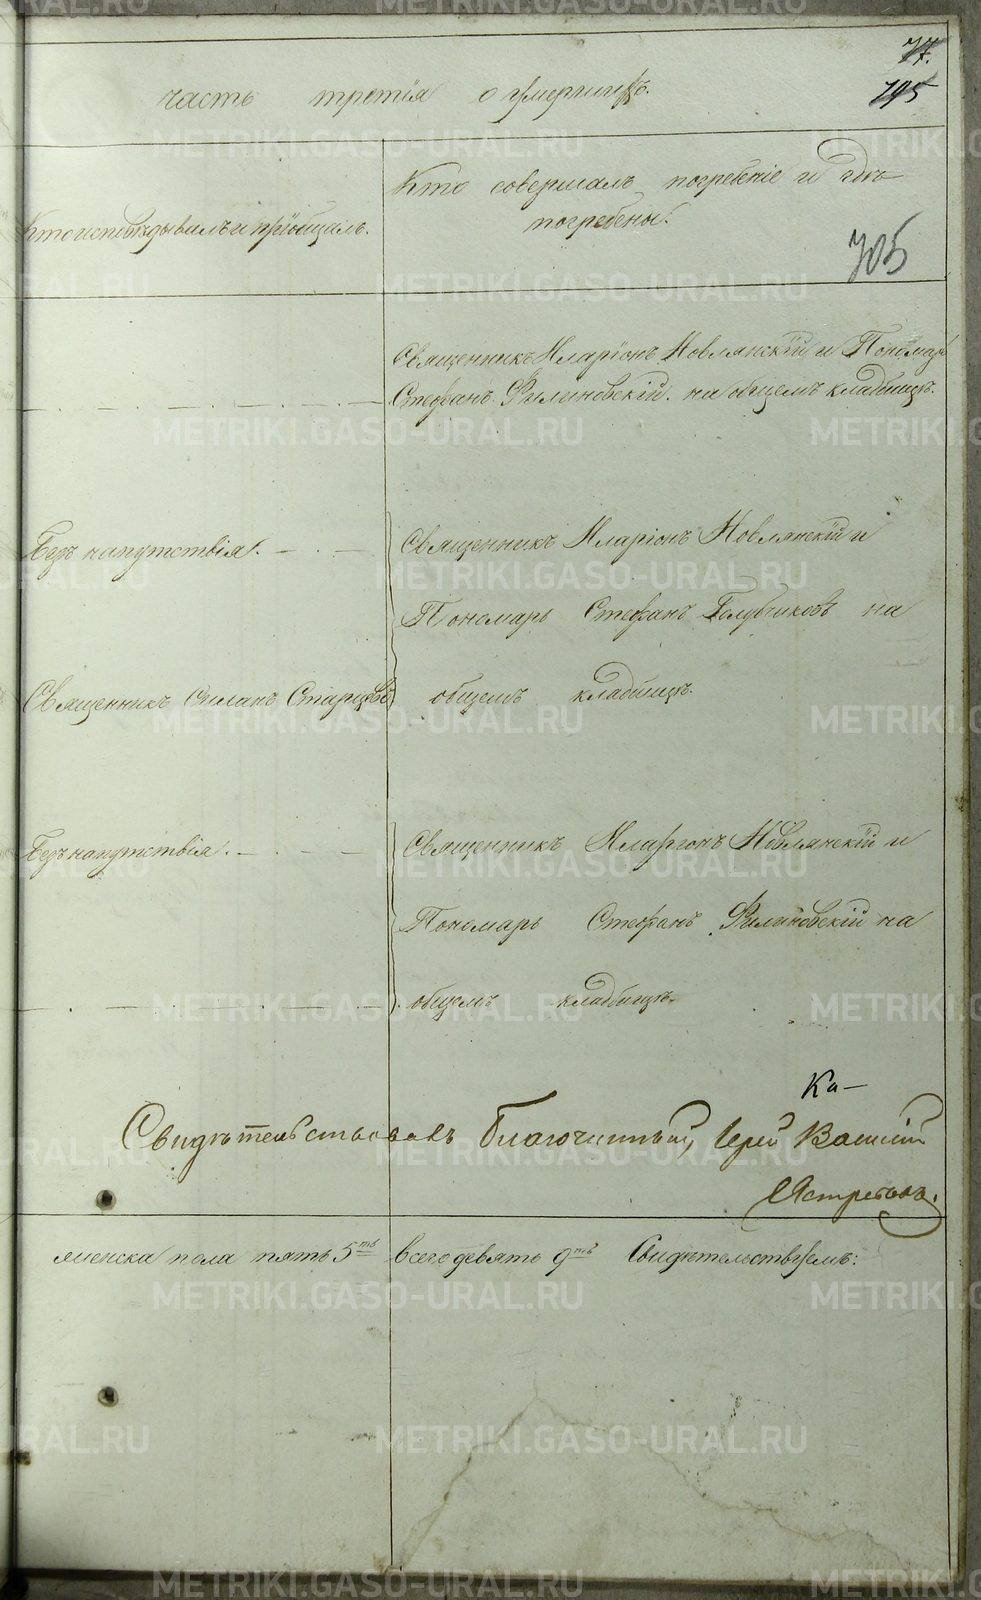 77.
часть третія о умершихъ.
795
Кто исповѣдывалъ и пріобщалъ.
Кто совершалъ погребеніе и гдѣ
погребены.
705
Священникъ Иларіонъ Новлянскій и Пономарь
Стефанъ Филиновскій. на общемъ кладбищѣ.
Безъ напутствія.
Священникъ Иларіонъ Новлянскій и
Пономарь Стефанъ Голубчиковъ на
Священникъ Силанъ Старцевъ
общемъ кладбищѣ.
Безъ напутствія.
Священникъ Иларіонъ Новлянскій и
Пономарь Стефанъ Филиновскій на
общемъ кладбищѣ.
Ка-
Свидѣтельствовалъ Благочинный, Іерей Василій
Ястребовъ.
женска пола пять 5ть всего девять 9ть Свидѣтельствуемъ:
METRIKI.GASO-URAL.RU